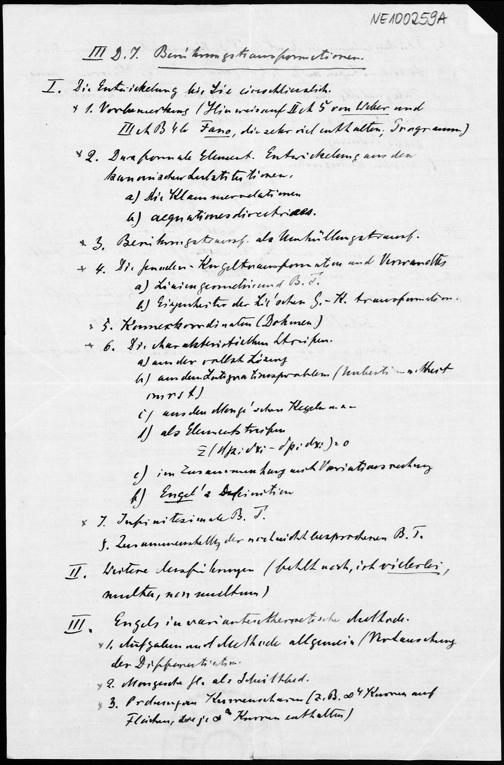 NE100259A
III D. 7. Berührungstransformationen.
I. Die Entwickelung bis Lie einschliesslich.
* 1. Vorbemerkung (Hinweis auf II Ch 5 von Weber und
III Ch B 4b Fano, die sehr viel enthalten, Programm)
* 2. Das formale Element. Entwickelung aus den
kanonischen Substitutionen.
a) Die Klammerrelationen
b) aequationes directrices.
* 3. Berührungstransf. als Umhüllungstransf.
* 4. Die Geraden-Kugeltransformation und Verwandtes
a) Liniengeometrie und B. T.
b) Eigenheiten der Lie'schen G.-K. transformation.
* 5. Konnexkoordinaten (Dokmen)
* 6. Die charakteristischen Streifen.
a) aus der vollst Lösung
b) aus dem Integrationsproblem
m r s t)
c) aus den Monge'schen Kegeln
d) als Elementstreifen
Σ(dp_i dx_i - dp_i dx_i) = 0
e) im Zusammenhang mit Variationsrechnung
f) Engel's Definition
* 7. Infinitesimale B. T.
8. Zusammenstellg der noch nicht besprochenen B. T.
II. Weitere Ausführungen (fehlt noch, ist vielerlei,
multa, non multum)
III. Engels invariantentheoretische Methode.
* 1. Aufgaben und Methode allgemein (Vertauschung
der Differentiation.
* 2. Mongesche Gl. als Schnittbed.
* 3. Ordnungen Kurvenscharen (z. B. ∞⁴ Kurven auf
Flächen, die je ∞ Kurven enthalten)